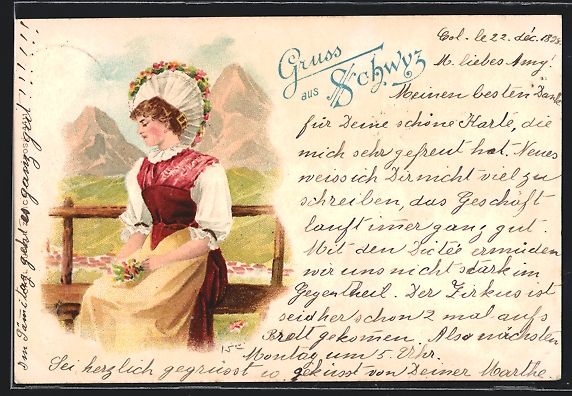 Gruss
aus
Schwyz
Col. le 22. déc. 1898.
M. liebes Amy!
Meinen besten Dank
für Deine schöne Karte, die
mich sehr gefreut hat. Neues
weiss ich Dir nicht viel zu
schreiben, das Geschäft
lauft imer ganz gut.
Mit den Dictée ermüden
wir uns nicht stark im
Gegentheil. Der Zirkus ist
seidher schon 2 mal aufs
Brett gekomen. Also nächsten
Montag um 5 Uhr.
Sei herzlich gegrüsst u geküsst von Deiner Marthe
Im Samstag geht es ganz gut !!!!!!!